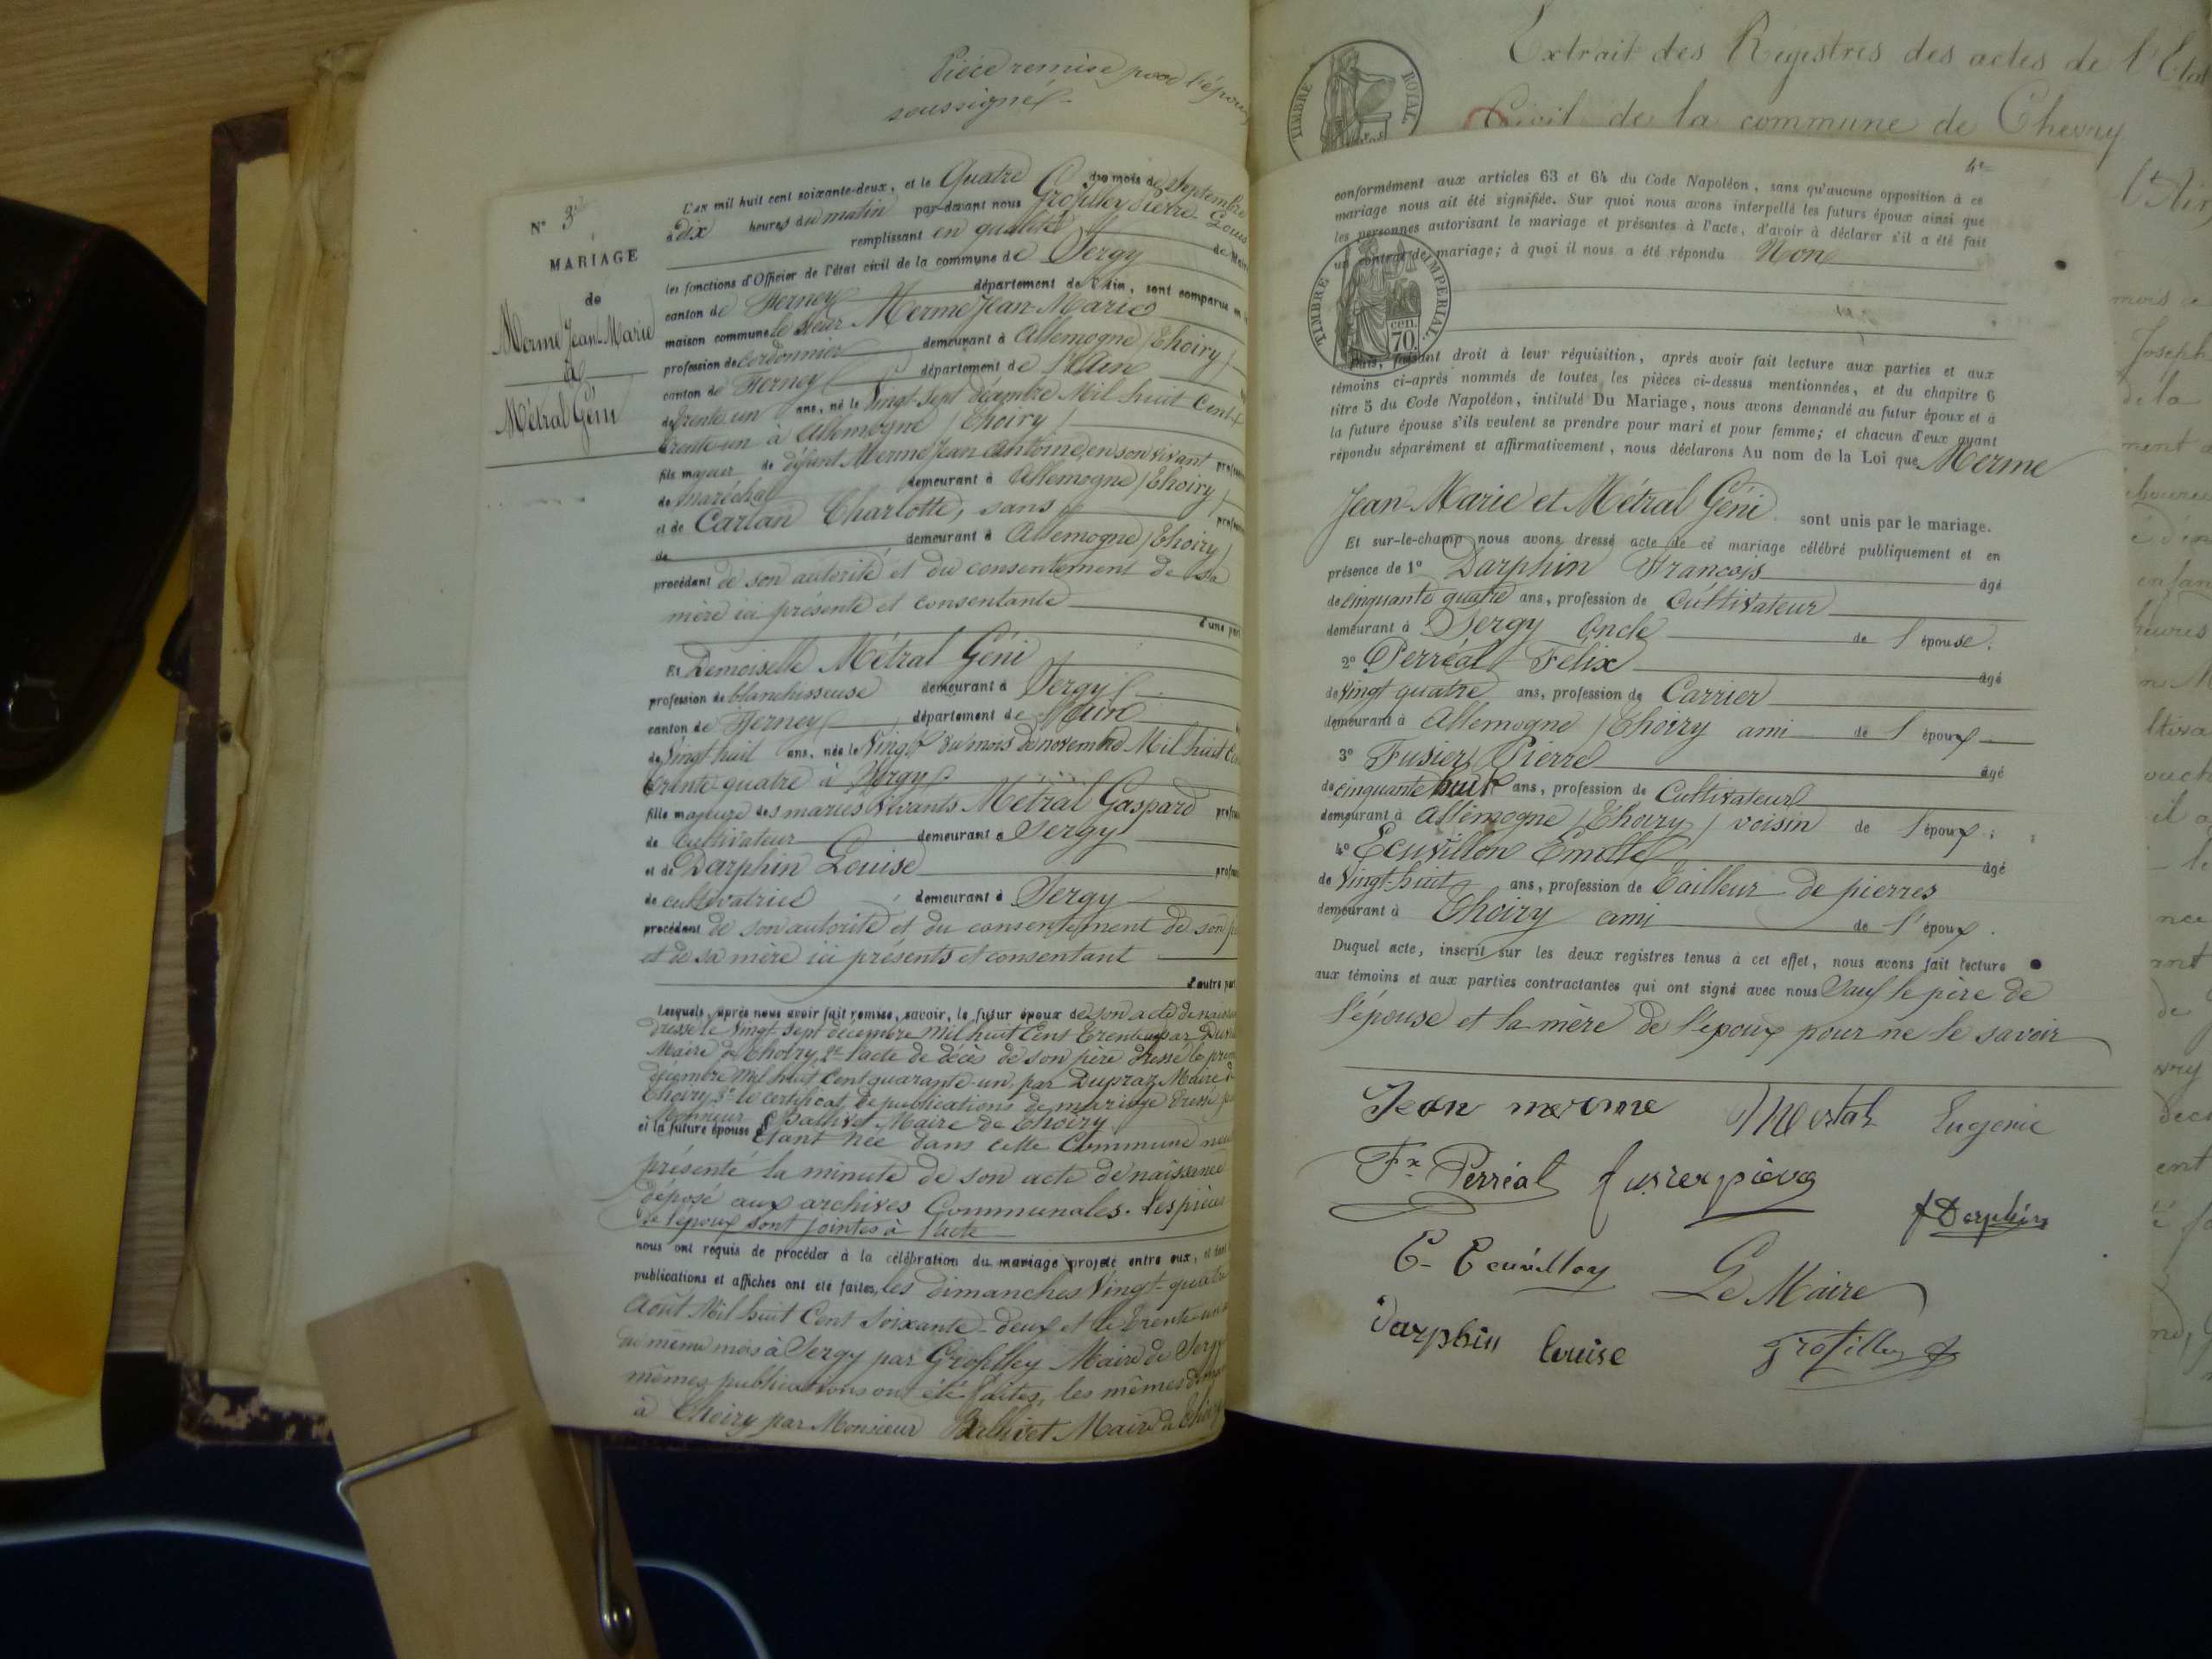 Pièce remise par l'époux
soussigné
N° 3
MARIAGE
de
Merme Jean-Marie
&
Métral Géni
L'an mil huit cent soixante-deux, et le Quatre du mois de Septembre
à dix heures du matin par-devant nous Grosfilley Pierre Louis
remplissant en qualité de Maire
les fonctions d'Officier de l'état civil de la commune de Sergy
canton de Ferney département de l'Ain, sont comparus en la
maison commune le Sieur Merme Jean-Marie
profession de cordonnier demeurant à Allemogne (Thoiry)
canton de Ferney département de l'Ain
de trente un ans, né le Vingt-sept décembre Mil huit Cent
trente-un à Allemogne (Thoiry)
fils majeur de défunt Merme Jean Antoine, en son vivant
de maréchal demeurant à Allemogne (Thoiry)
et de Carlan Charlotte, sans
de demeurant à Allemogne (Thoiry)
procédant de son autorité et du consentement de sa
mère ici présente et consentante
d'une part
Et Demoiselle Métral Géni
profession de blanchisseuse demeurant à Sergy
canton de Ferney département de l'Ain
de Vingt huit ans, née le Vingt du mois de novembre Mil huit Cent
trente-quatre à Sergy
fille majeure des mariés vivants Métral Gaspard
de Cultivateur demeurant à Sergy
et de Darphin Louise
de cultivatrice demeurant à Sergy
procédant de son autorité et du consentement de son
et de sa mère ici présents et consentant
d'autre part
Lesquels, après nous avoir fait remise, savoir, le futur époux de son acte de naissance
dressé le Vingt sept décembre Mil huit Cent trente un par
Maire de Thoiry, 2° l'acte de décès de son père dressé le
décembre Mil huit Cent quarante-un, par Dupraz Maire de
Thoiry, 3° le certificat de publications de mariage dressé par
Monsieur Ballivet Maire de Thoiry
et la future épouse Etant née dans cette Commune nous
présenté la minute de son acte de naissance
déposé aux archives Communales. Les pièces
de l'époux sont jointes à l'acte
nous ont requis de procéder à la célébration du mariage projeté entre eux, et dont
publications et affiches ont été faites, les dimanches Vingt-quatre
Août Mil huit Cent Soixante-deux et le trente-un
du même mois à Sergy par Grosfilley Maire de Sergy
mêmes publications ont été faites, les mêmes
à Thoiry par Monsieur Ballivet Maire de Thoiry
Extrait des Régistres des actes de l'Etat
Civil de la commune de Chevry
(Ain)
TIMBRE ROYAL
4e
conformément aux articles 63 et 64 du Code Napoléon, sans qu'aucune opposition à ce
mariage nous ait été signifiée. Sur quoi nous avons interpellé les futurs époux ainsi que
les personnes autorisant le mariage et présentes à l'acte, d'avoir à déclarer s'il a été fait
un contrat de mariage; à quoi il nous a été répondu Non
TIMBRE IMPERIAL
70 cen.
Puis, faisant droit à leur réquisition, après avoir fait lecture aux parties et aux
témoins ci-après nommés de toutes les pièces ci-dessus mentionnées, et du chapitre 6
titre 5 du Code Napoléon, intitulé Du Mariage, nous avons demandé au futur époux et à
la future épouse s'ils veulent se prendre pour mari et pour femme; et chacun d'eux ayant
répondu séparément et affirmativement, nous déclarons Au nom de la Loi que Merme
Jean-Marie et Métral Géni sont unis par le mariage.
Et sur-le-champ nous avons dressé acte de ce mariage célébré publiquement et en
présence de 1° Darphin François âgé
de cinquante quatre ans, profession de Cultivateur
demeurant à Sergy Oncle de l'épouse.
2° Perréal Félix âgé
de Vingt quatre ans, profession de Carrier
demeurant à Allemogne (Thoiry ami de l'époux
3° Fusier Pierre âgé
de cinquante huit ans, profession de Cultivateur
demeurant à Allemogne (Thoiry) voisin de l'époux;
4° Ecuvillon Emille âgé
de Vingt-huit ans, profession de Tailleur de pierres
demeurant à Thoiry ami de l'époux.
Duquel acte, inscrit sur les deux registres tenus à cet effet, nous avons fait lecture
aux témoins et aux parties contractantes qui ont signé avec nous Sauf le père de
l'épouse et la mère de l'époux pour ne le savoir
Jean merme Metral Eugenie
Fx Perréal fusier pierre
f Darphin
E. Ecuvillon Le Maire
Darphin Louise Grosfilley